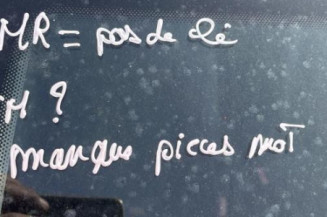 MR = pas de clé
M ?
manque pieces mot